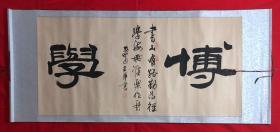 博
書山有路勤為徑
學海無涯樂作舟
學